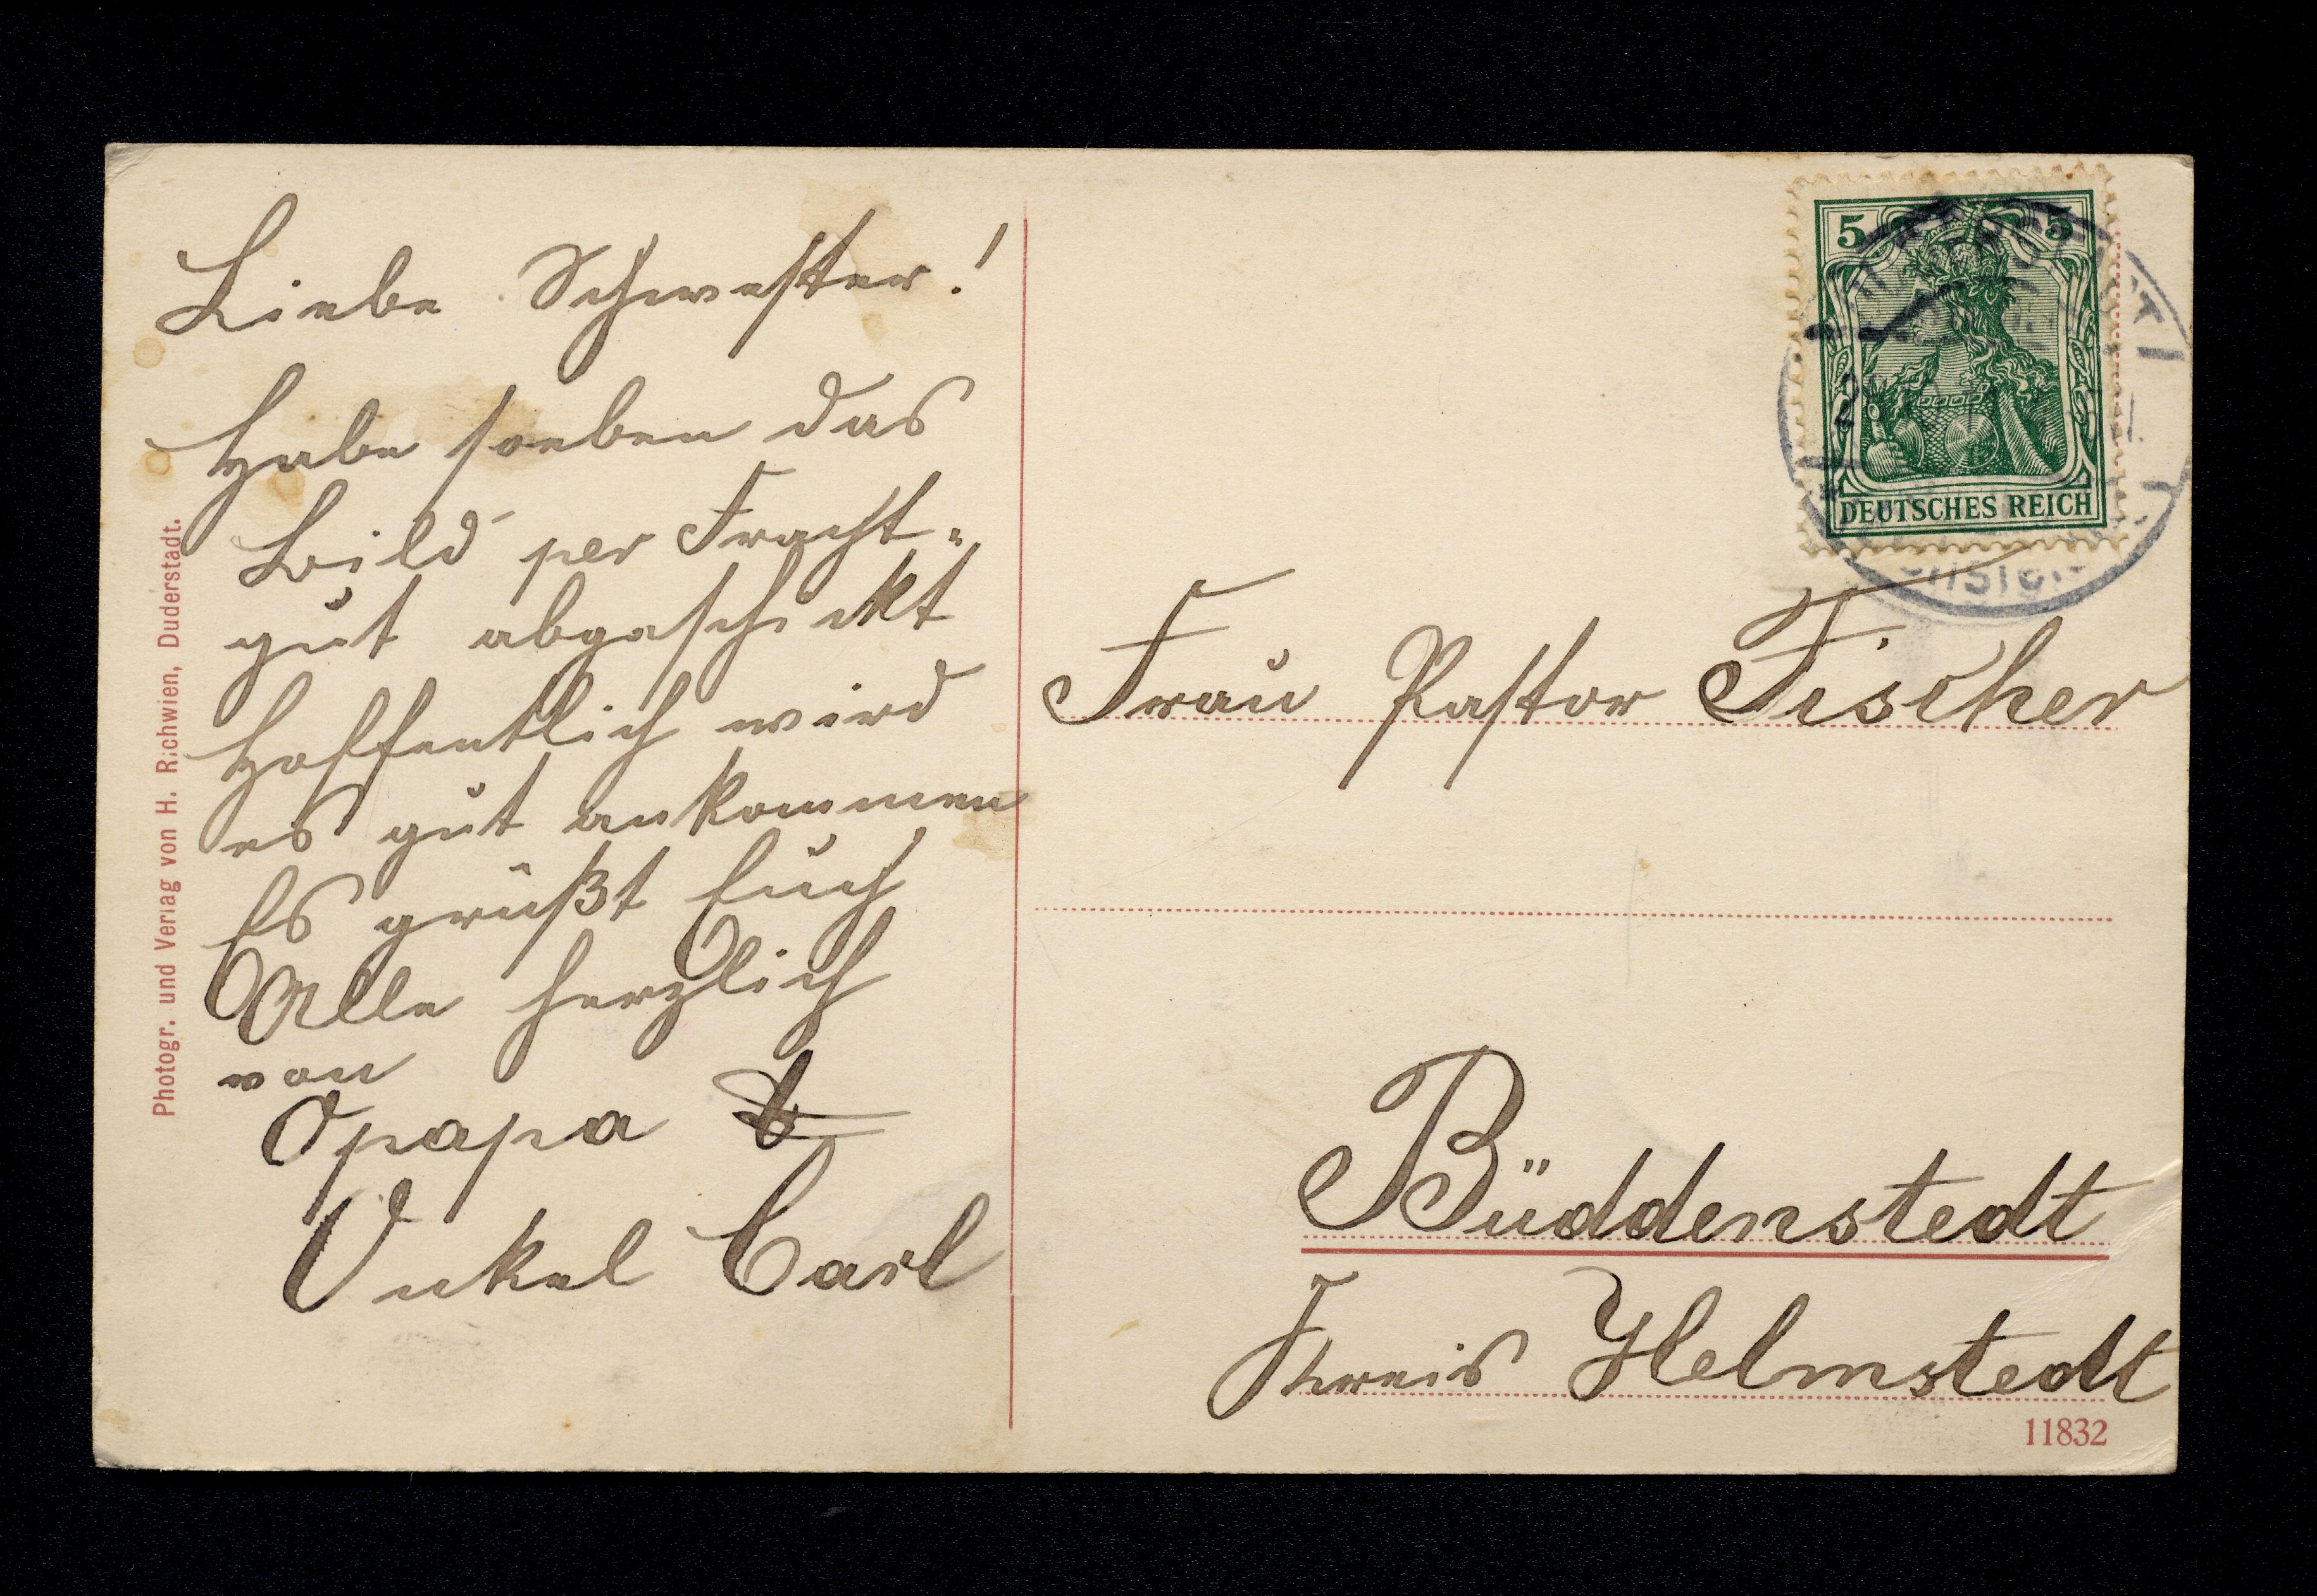 Liebe Schwester!
Habe soeben das
Bild per Fracht=
gut abgeschickt
Hoffentlich wird
es gut ankommen
Es grüßt Euch
Alle herzlich
von
Opapa
Onkel Carl
Photogr. und Verlag von H. Richwien, Duderstadt.
5 5
DEUTSCHES REICH
Frau Pastor Fischer
Büddenstedt
Kreis Helmstedt
11832